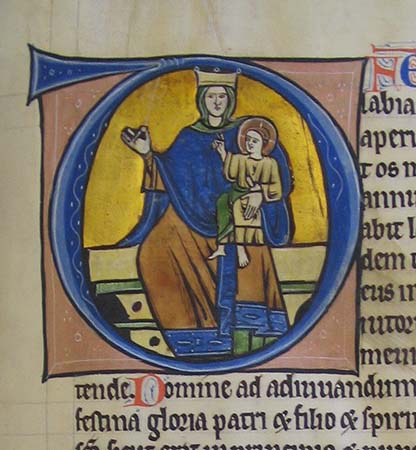 D NE
labia
aperi
t os m
annu
abit l
dem t
eus in
iutor
meum
tende. Domine ad adiuuandum
festina gloria patri & filio & spiri